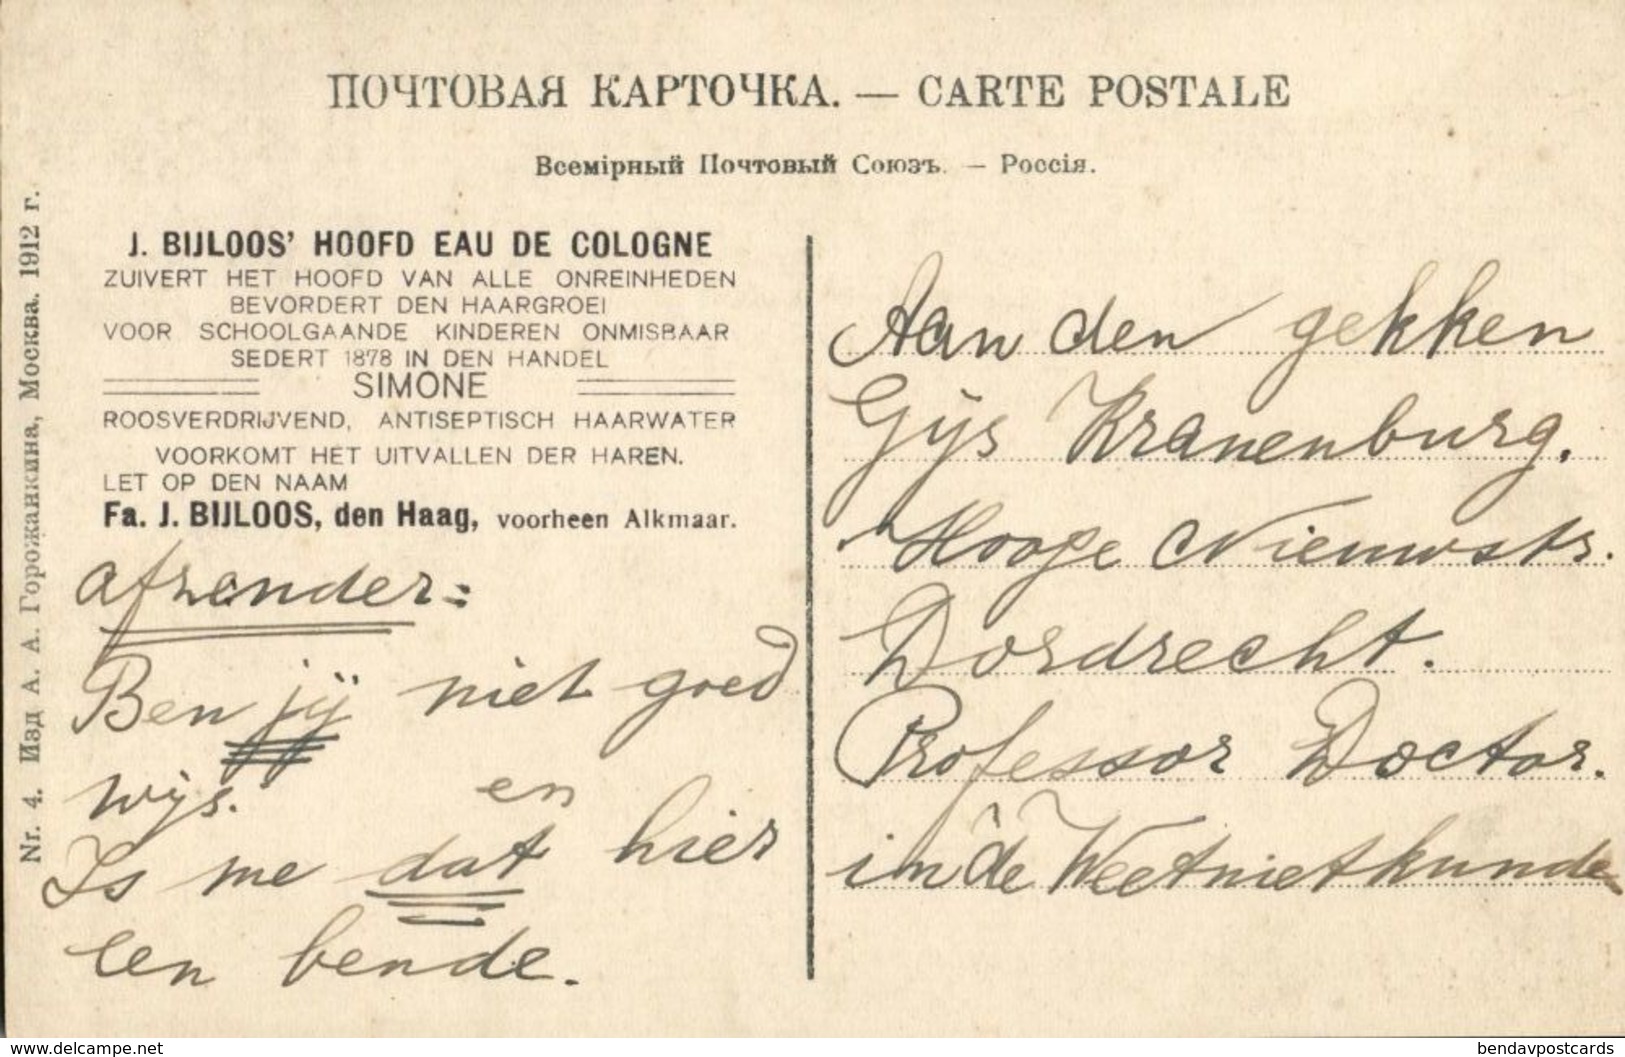 ПОЧТОВАЯ КАРТОЧКА. — CARTE POSTALE
Всемірный Почтовый Союзъ. — Россія.
Nr. 4. Изд А. А. Горожанкина, Москва. 1912 г.
J. BIJLOOS' HOOFD EAU DE COLOGNE
ZUIVERT HET HOOFD VAN ALLE ONREINHEDEN
BEVORDERT DEN HAARGROEI
VOOR SCHOOLGAANDE KINDEREN ONMISBAAR
SEDERT 1878 IN DEN HANDEL
SIMONE
ROOSVERDRIJVEND, ANTISEPTISCH HAARWATER
VOORKOMT HET UITVALLEN DER HAREN.
LET OP DEN NAAM
Fa. J. BIJLOOS, den Haag, voorheen Alkmaar.
afzender:
Ben jij niet goed
wijs. en
Is me dat hier
een bende.
Aan den gekken
Gijs Kranenburg.
Hooge Nieuwstr.
Dordrecht.
Professor Doctor.
in de Weetnietkunde
www.delcampe.net
bendavpostcards